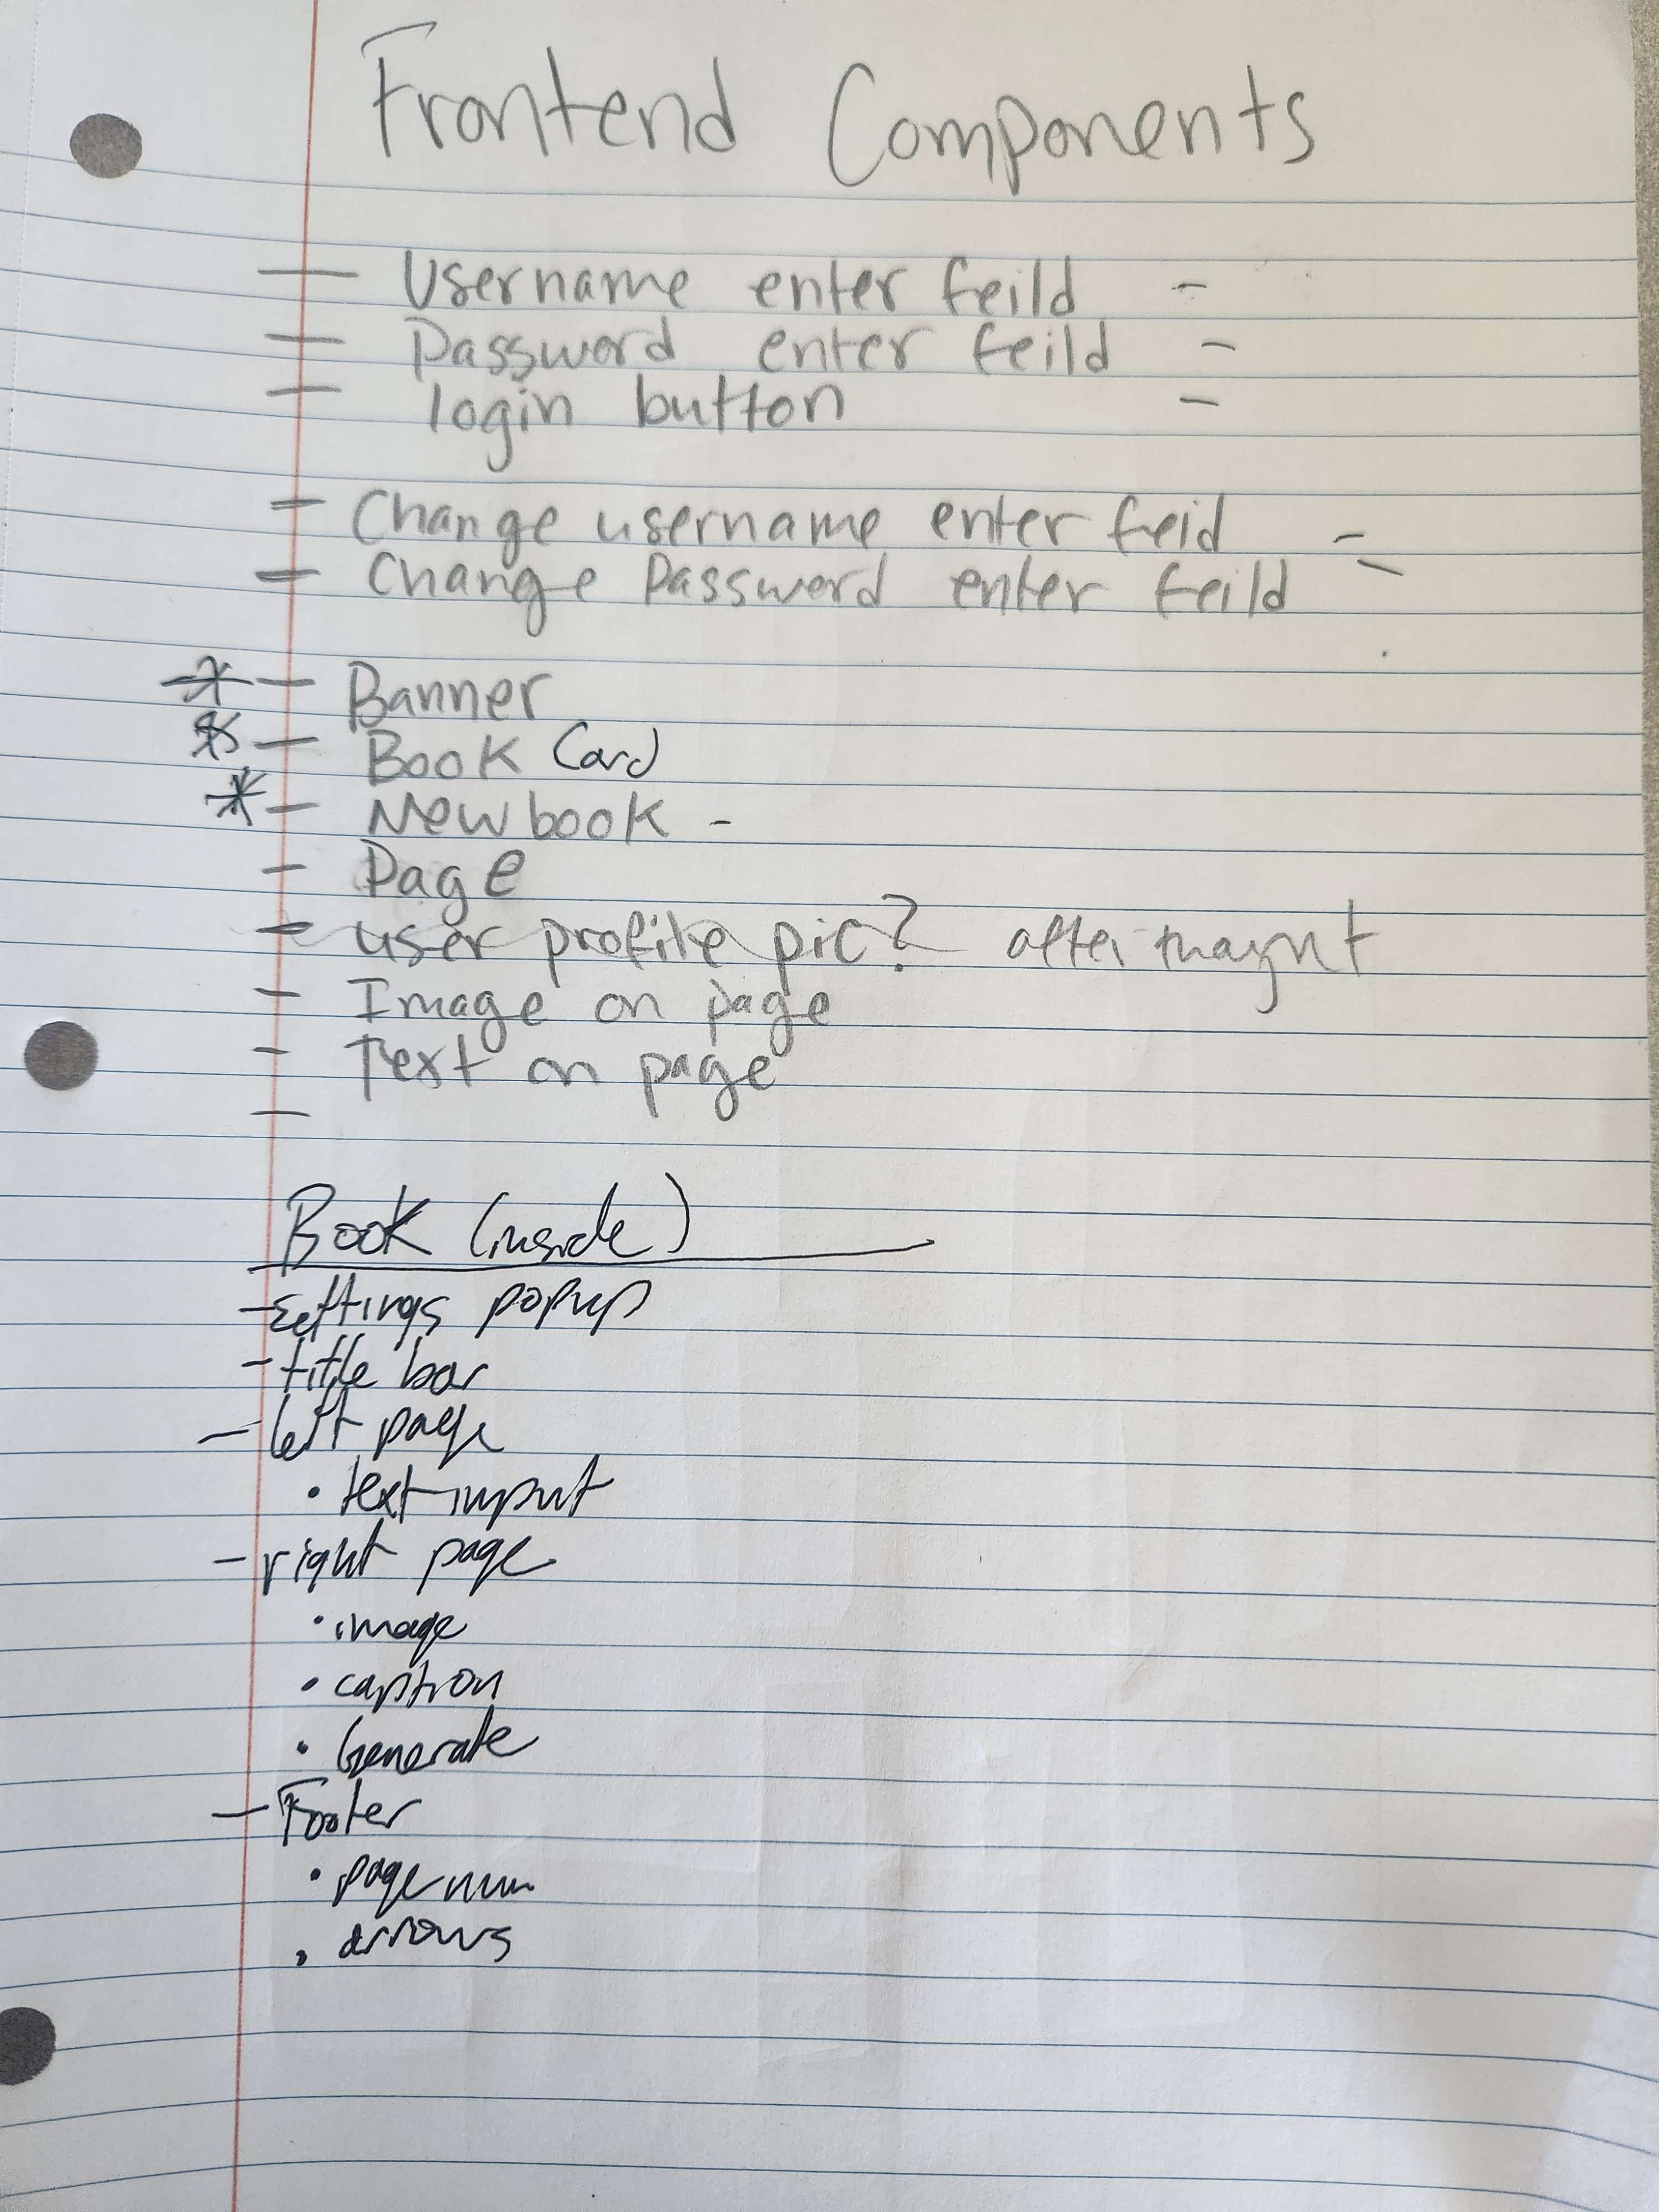 Frontend Components
— Username enter feild -
— Password enter feild -
— login button -
- Change username enter feid -
- Change Password enter feild -
* — Banner
* — Book Card
* — New book -
- Page
- user profile pic? after
- Image on page
- Text on page
-
Book (inside)
- settings popup
- title bar
- left page
• text input
- right page
• image
• caption
• Generate
- Footer
• page num
• arrows